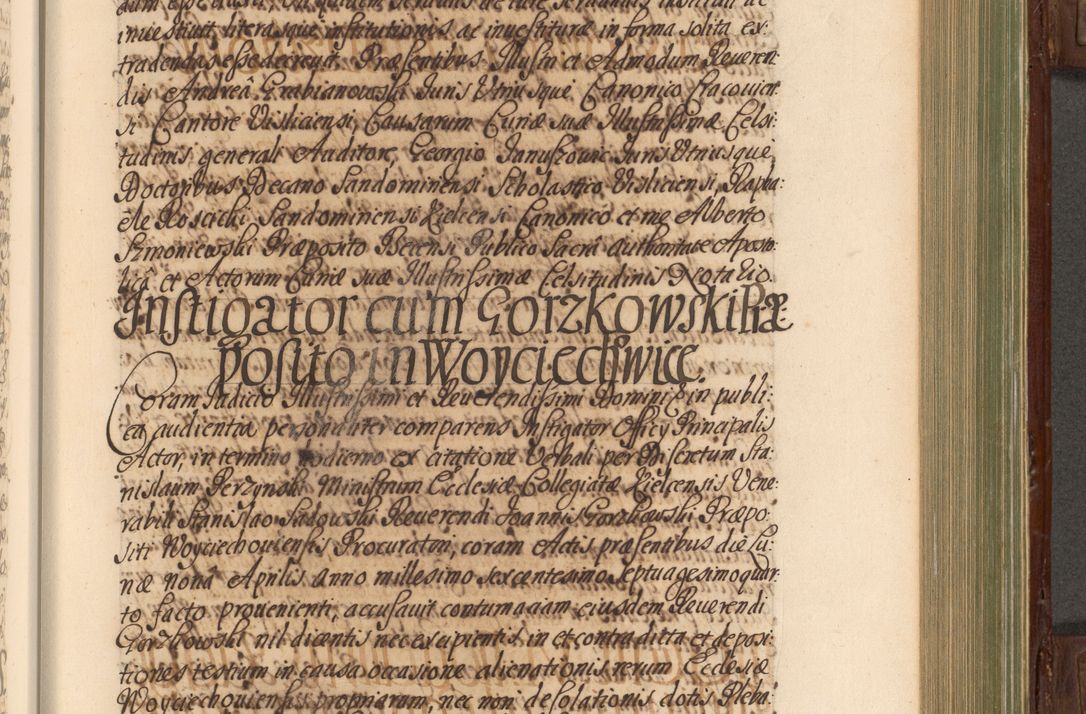 inuestiuit, literasque institutionis ac inuestituræ in forma solita ex:
tradendas esse decreuit. Præsentibus Illustri et Admodum Reueren:
dis Andreâ Grabianowski Iuris Vtriusque Canonico Cracouien:
si Cantore Visliciensi, Causarum Curiæ suæ Illustrissimæ Celsi:
tudinis generali Auditore, Georgio Ianuszowic Iuris Vtriusque
Doctoribus Decano Sandomiriensi Scholastico Visliciensi, Rapha:
ele Roscicki Sandomiriensi Kielcensi Canonico et me Alberto
Szmoniewski Præposito Becensi Publico Sacra authoritate Aposto:
licâ et Actorum Curiæ suæ Illustrissimæ Celsitudinis Notario.
Instigator cum Gorzkowski Præ:
posito in Woyciechowice.
Coram Iudicio Illustrissimi et Reuerendissimi Domini in publi:
ca audientia personaliter comparens Instigator Officij Principalis
Actor, in termino hodierno ex citatione Verbali per Discretum Sta:
nislaum Perzynski Ministrum Ecclesiæ Collegiatæ Kielcensis Vene:
rabili Stanislao Sadowski Reuerendi Joannis Gorzkowski Præpo:
siti Woyciechouiensis Procuratori, coram Actis præsentibus die Lu:
næ nonâ Aprilis anno millesimo sexcentesimo septuagesimo quar:
to facto prouenienti, accusauit contumaciam eiusdem Reuerendi
Gorzkowski nil dicentis nec excipientis in et contra dicta et deposi:
tiones testium in causa occasione alienationis rerum Ecclesiæ
Woyciechouiensis propriarum, nec non desolationis dotis Pleba: